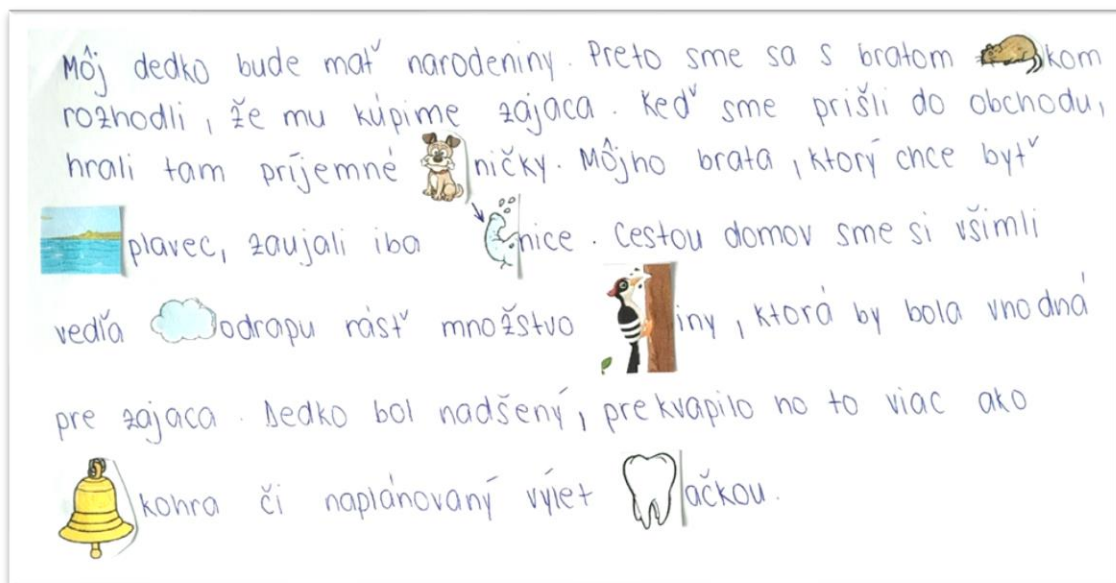 Môj dedko bude mať narodeniny. Preto sme sa s bratom kom
rozhodli, že mu kúpime zajaca. Keď sme prišli do obchodu,
hrali tam príjemné ničky. Môjho brata, ktorý chce byť
plavec, zaujali iba nice. Cestou domov sme si všimli
vedľa odrapu rásť množstvo iny, ktorá by bola vhodná
pre zajaca. Dedko bol nadšený, prekvapilo ho to viac ako
kohra či naplánovaný výlet ačkou.